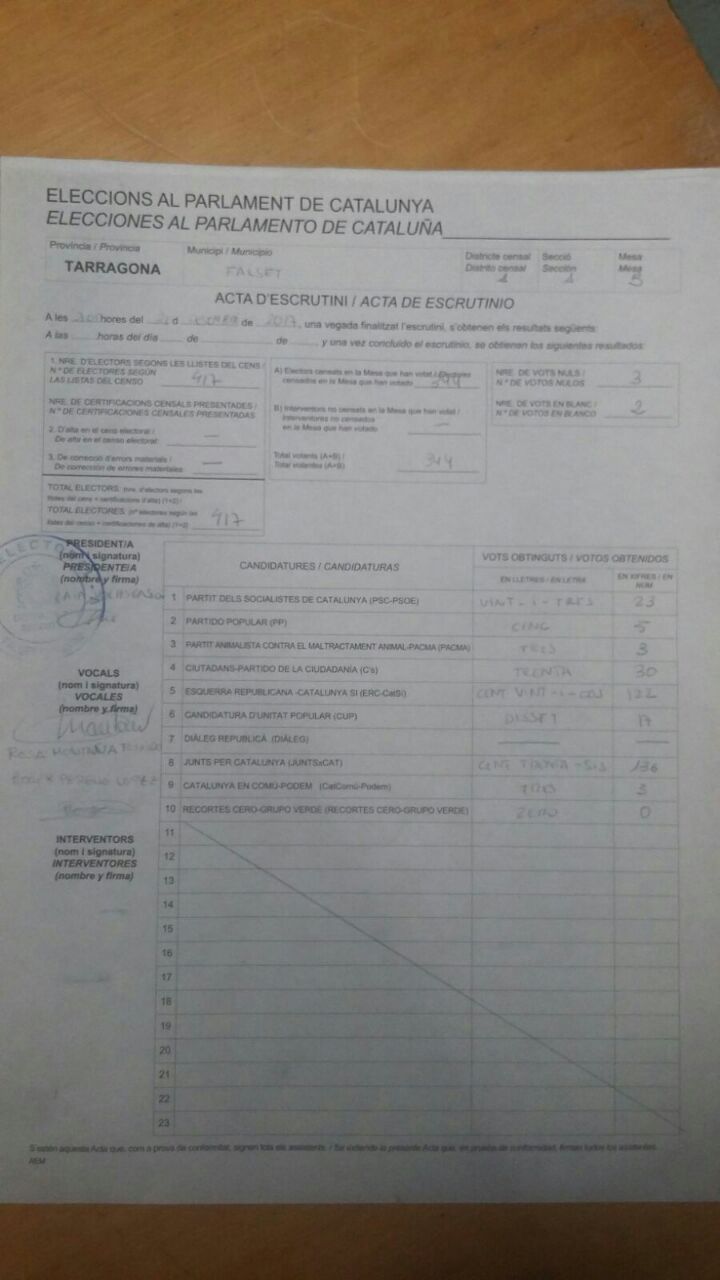 ELECCIONS AL PARLAMENT DE CATALUNYA
ELECCIONES AL PARLAMENTO DE CATALUÑA
Província / Provincia
TARRAGONA
Municipi / Municipio
FALSET
Districte censal
Distrito censal
1
Secció
Sección
1
Mesa
Mesa
B
ACTA D'ESCRUTINI / ACTA DE ESCRUTINIO
A les 20 hores del 21 d de 2017, una vegada finalitzat l'escrutini, s'obtenen els resultats següents:
A las horas del día de de , y una vez concluido el escrutinio, se obtienen los siguientes resultados:
1. NRE. D'ELECTORS SEGONS LES LLISTES DEL CENS /
N.º DE ELECTORES SEGÚN
LAS LISTAS DEL CENSO 417
NRE. DE CERTIFICACIONS CENSALS PRESENTADES /
N.º DE CERTIFICACIONES CENSALES PRESENTADAS
2. D'alta en el cens electoral /
De alta en el censo electoral: —
3. De correcció d'errors materials /
De corrección de errores materiales: —
TOTAL ELECTORS: (nre. d'electors segons les
llistes del cens + certificacions d'alta) (1+2) /
TOTAL ELECTORES: (nº electores según las
listas del censo + certificaciones de alta) (1+2) 417
A) Electors censats en la Mesa que han votat / Electores
censados en la Mesa que han votado 344
B) Interventors no censats en la Mesa que han votat /
Interventores no censados
en la Mesa que han votado —
Total votants (A+B) /
Total votantes (A+B) 344
NRE. DE VOTS NULS /
N.º DE VOTOS NULOS 3
NRE. DE VOTS EN BLANC /
N.º DE VOTOS EN BLANCO 2
PRESIDENT/A
(nom i signatura)
PRESIDENTE/A
(nombre y firma)
VOCALS
(nom i signatura)
VOCALES
(nombre y firma)
ROSA MONTAÑA
LOPEZ
INTERVENTORS
(nom i signatura)
INTERVENTORES
(nombre y firma)
CANDIDATURES / CANDIDATURAS
VOTS OBTINGUTS / VOTOS OBTENIDOS
EN LLETRES / EN LETRA
EN XIFRES / EN NUM
1 PARTIT DELS SOCIALISTES DE CATALUNYA (PSC-PSOE) VINT-I-TRES 23
2 PARTIDO POPULAR (PP) CINC 5
3 PARTIT ANIMALISTA CONTRA EL MALTRACTAMENT ANIMAL-PACMA (PACMA) TRES 3
4 CIUTADANS-PARTIDO DE LA CIUDADANÍA (C's) TRENTA 30
5 ESQUERRA REPUBLICANA -CATALUNYA SI (ERC-CatSí) CENT VINT-I-DOS 122
6 CANDIDATURA D'UNITAT POPULAR (CUP) DISSET 17
7 DIÀLEG REPUBLICÀ (DIÀLEG) — —
8 JUNTS PER CATALUNYA (JUNTSxCAT) CENT TRENTA-SIS 136
9 CATALUNYA EN COMÚ-PODEM (CatComú-Podem) TRES 3
10 RECORTES CERO-GRUPO VERDE (RECORTES CERO-GRUPO VERDE) ZERO 0
11
12
13
14
15
16
17
18
19
20
21
22
23
S'estén aquesta Acta que, com a prova de conformitat, signen tots els assistents. / Se extiende la presente Acta que, en prueba de conformidad, firman todos los asistentes.